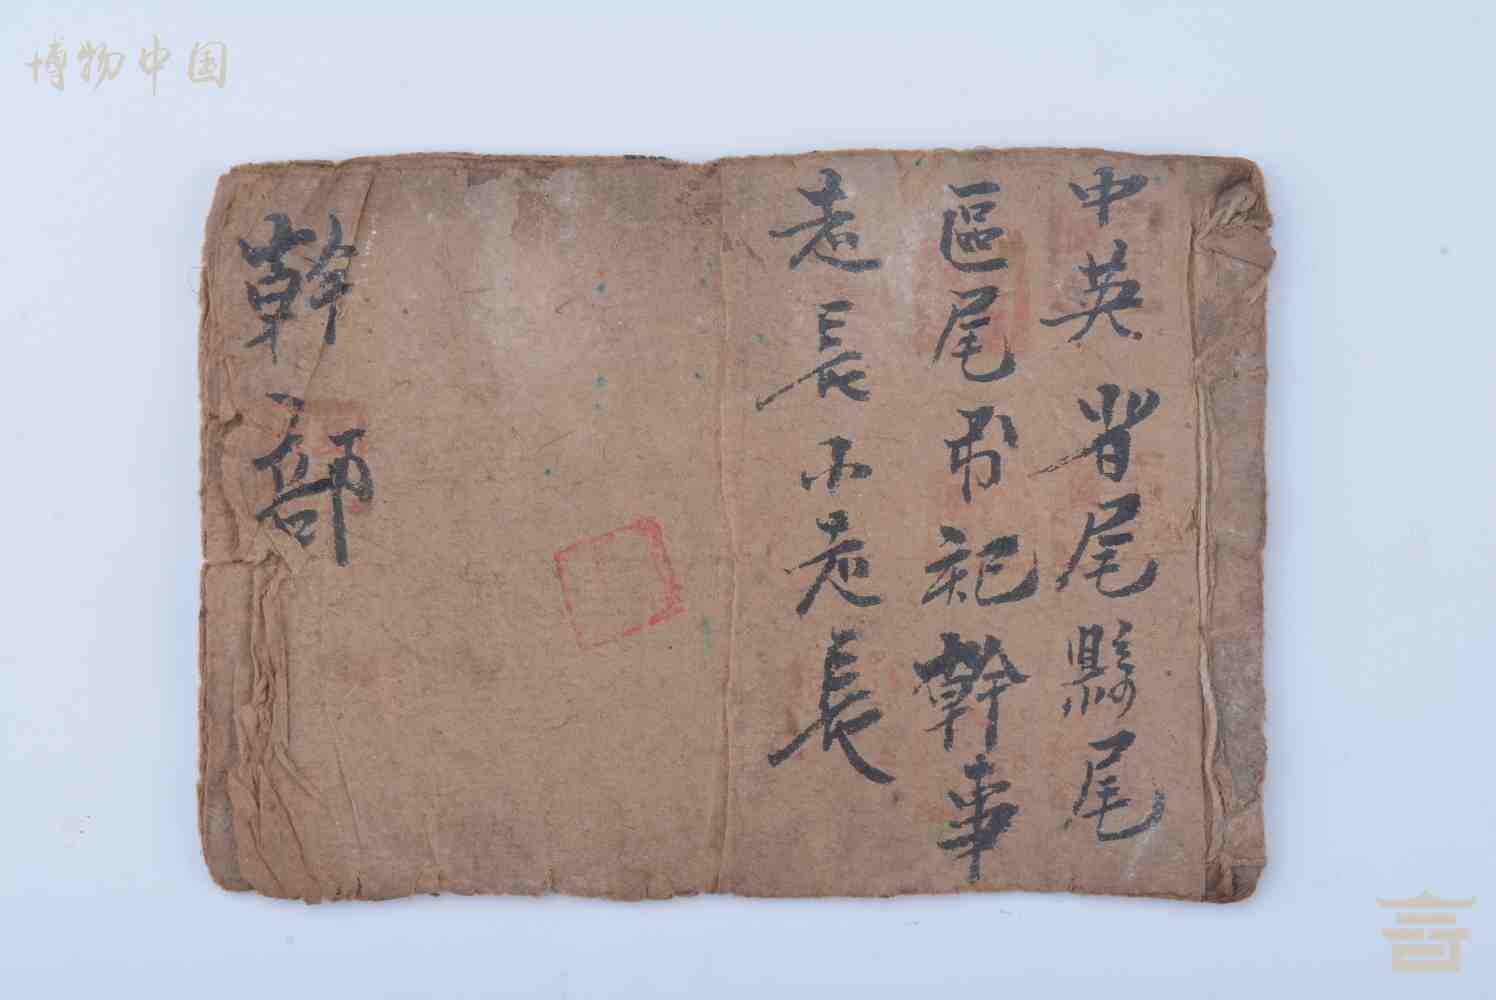 博物中国
中英省尾縣尾
區尾书祀幹事
老長小老長
幹部